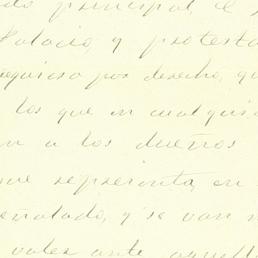 do principal, el
Palacio, y protesta
requiso por derecho, qu
los que en cualqui
n a los dueños
ue representa, en
eñalado, y se van
valer ante aquell